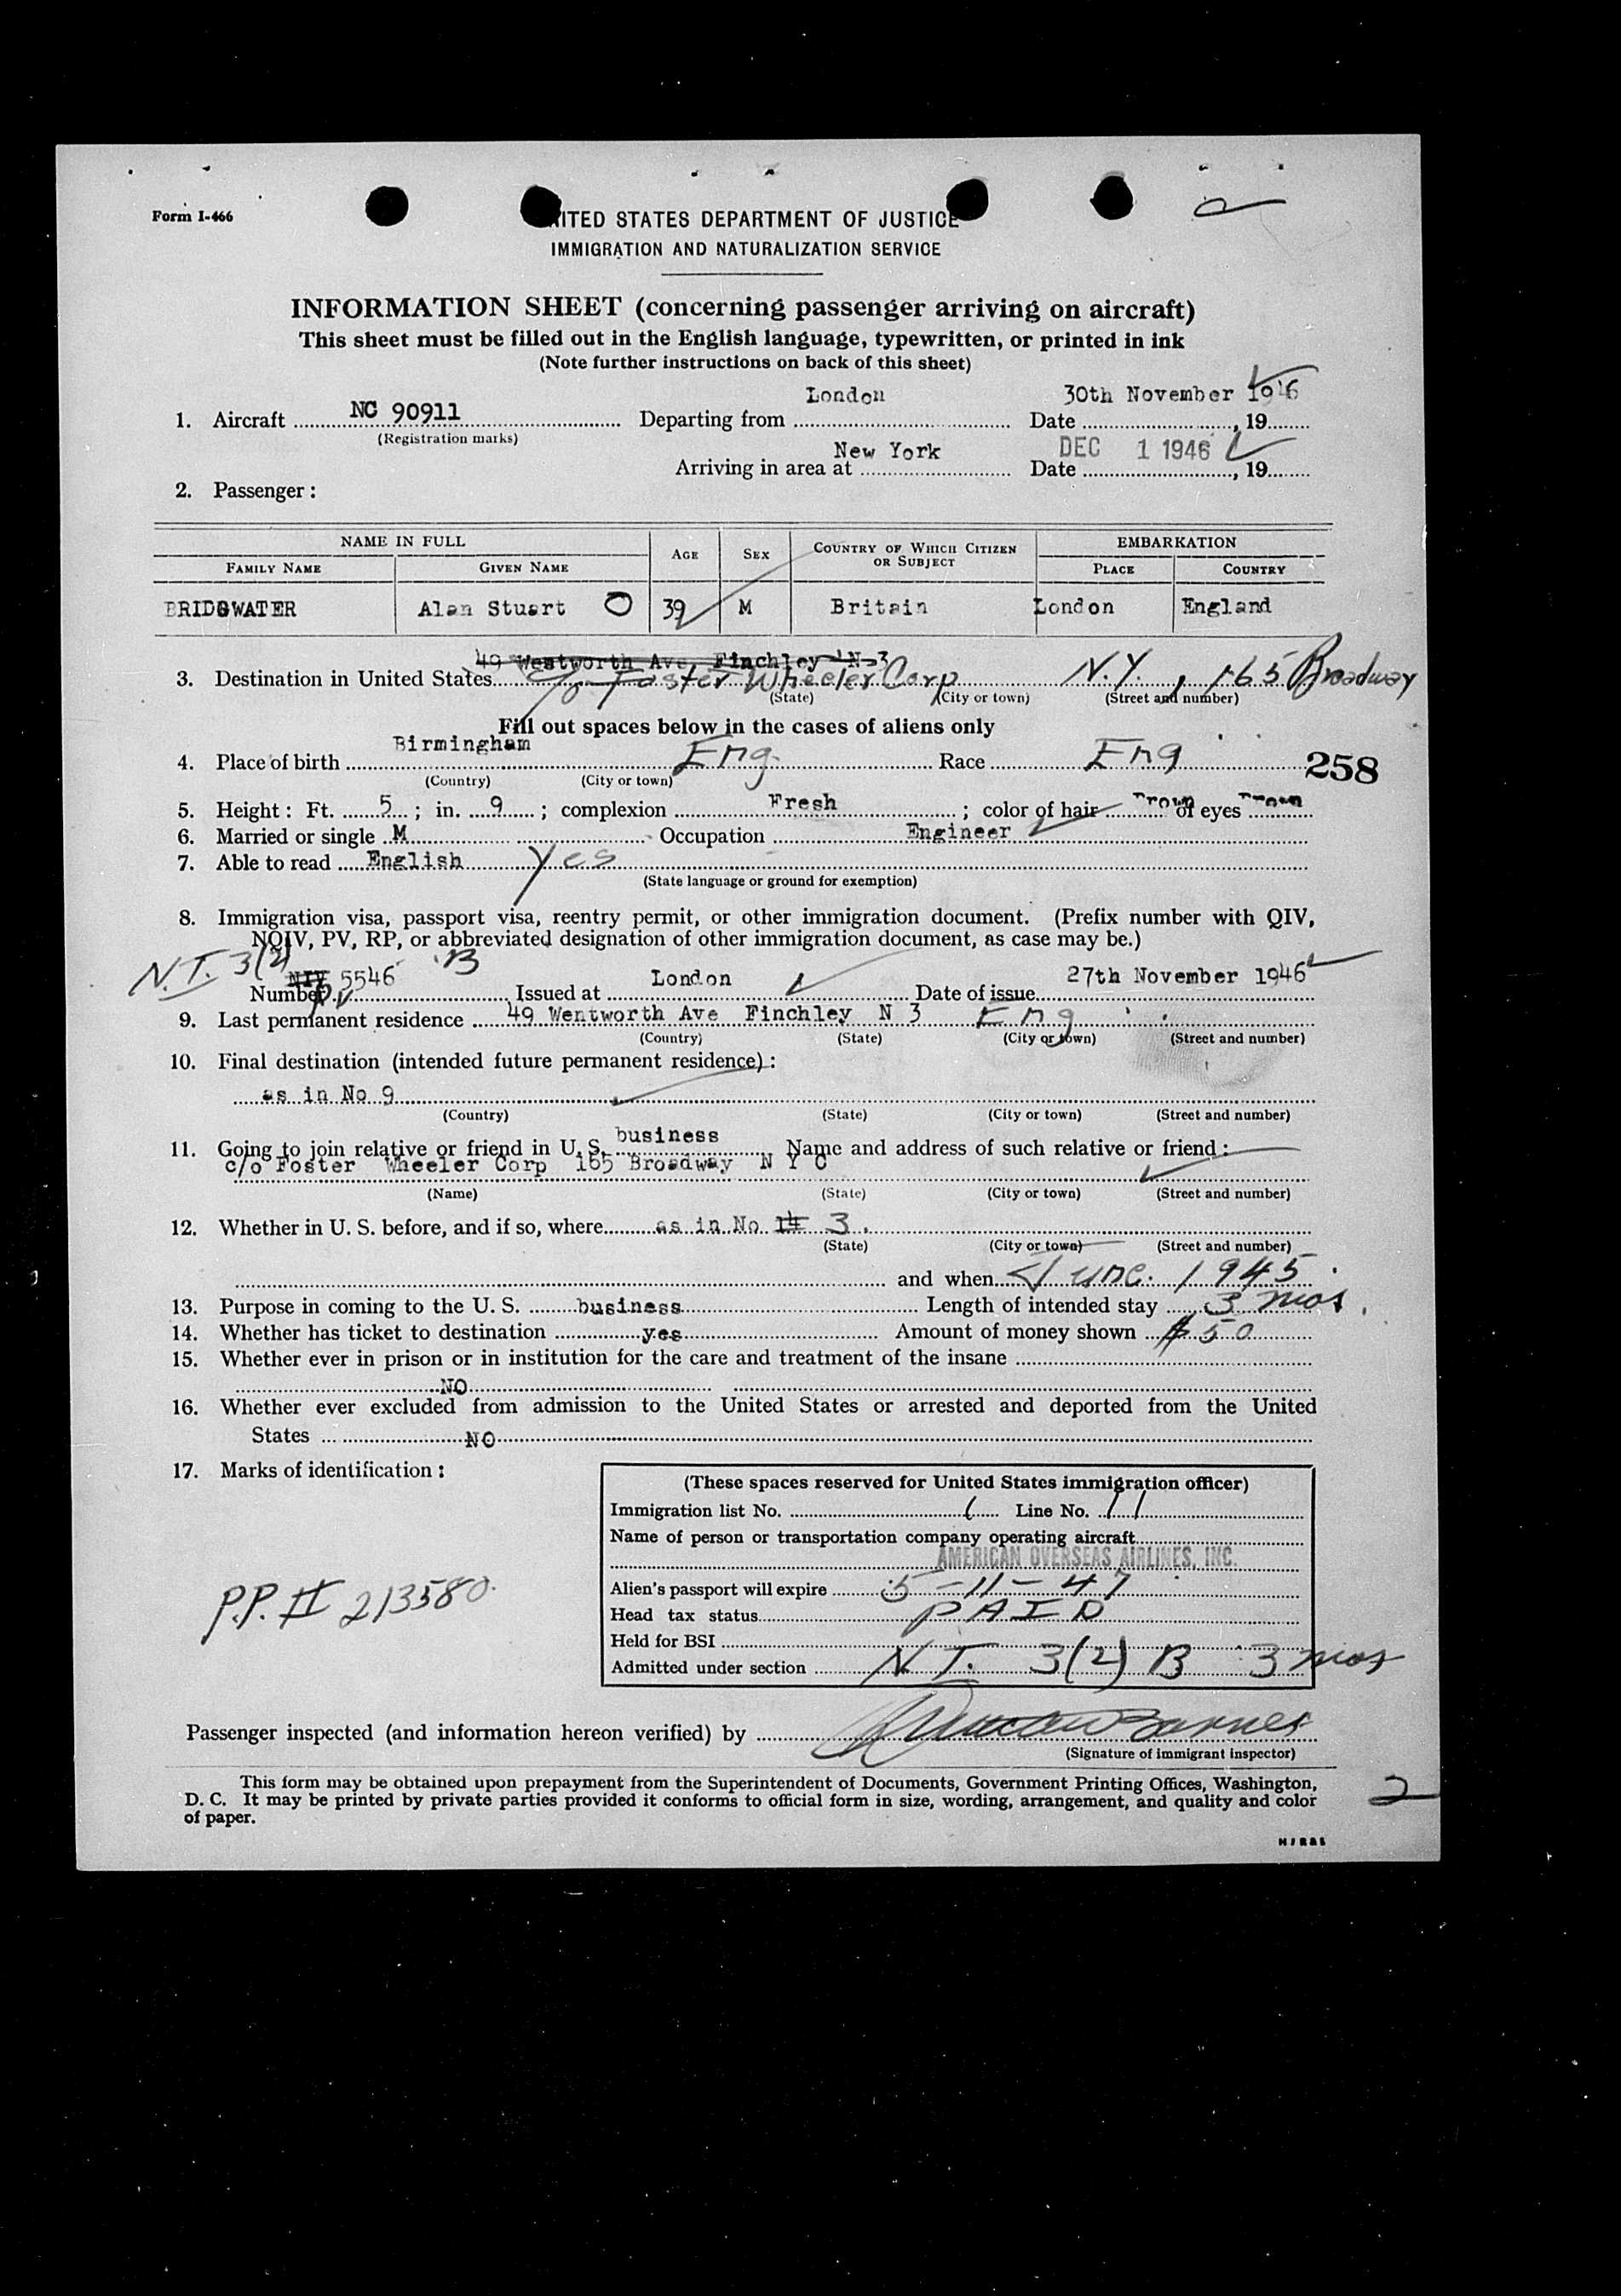 Form I-466
UNITED STATES DEPARTMENT OF JUSTICE
IMMIGRATION AND NATURALIZATION SERVICE
INFORMATION SHEET (concerning passenger arriving on aircraft)
This sheet must be filled out in the English language, typewritten, or printed in ink
(Note further instructions on back of this sheet)
London 30th November 1946
1. Aircraft NC 90911 Departing from Date , 19
(Registration marks)
New York DEC 1 1946
Arriving in area at Date , 19
2. Passenger:
NAME IN FULL AGE SEX COUNTRY OF WHICH CITIZEN OR SUBJECT EMBARKATION
FAMILY NAME GIVEN NAME PLACE COUNTRY
BRIDGWATER Alan Stuart O 39 M Britain London England
49 Wentworth Ave, Finchley N-3
3. Destination in United States c/o Foster Wheeler Corp N.Y., 165 Broadway
(State) (City or town) (Street and number)
Fill out spaces below in the cases of aliens only
4. Place of birth Birmingham Eng. Race Eng
(Country) (City or town)
258
5. Height: Ft. 5; in. 9; complexion Fresh; color of hair Brown of eyes Brown
6. Married or single M Occupation Engineer
7. Able to read English Yes
(State language or ground for exemption)
8. Immigration visa, passport visa, reentry permit, or other immigration document. (Prefix number with QIV,
NQIV, PV, RP, or abbreviated designation of other immigration document, as case may be.)
N.T. 3(2) B
Number NIV P.V. 5546 Issued at London Date of issue 27th November 1946
9. Last permanent residence 49 Wentworth Ave Finchley N 3 Eng
(Country) (State) (City or town) (Street and number)
10. Final destination (intended future permanent residence):
as in No 9
(Country) (State) (City or town) (Street and number)
11. Going to join relative or friend in U. S. business Name and address of such relative or friend:
c/o Foster Wheeler Corp 165 Broadway N Y C
(Name) (State) (City or town) (Street and number)
12. Whether in U. S. before, and if so, where as in No 14 3.
(State) (City or town) (Street and number)
and when June 1945
13. Purpose in coming to the U. S. business Length of intended stay 3 mos.
14. Whether has ticket to destination yes Amount of money shown $50
15. Whether ever in prison or in institution for the care and treatment of the insane
NO
16. Whether ever excluded from admission to the United States or arrested and deported from the United
States NO
17. Marks of identification:
P.P. II 213580.
(These spaces reserved for United States immigration officer)
Immigration list No. 1 Line No. 11
Name of person or transportation company operating aircraft
AMERICAN OVERSEAS AIRLINES, INC.
Alien's passport will expire 5-11-47
Head tax status PAID
Held for BSI
Admitted under section N.T. 3(2) B 3 mos
Passenger inspected (and information hereon verified) by Barnes
(Signature of immigrant inspector)
This form may be obtained upon prepayment from the Superintendent of Documents, Government Printing Offices, Washington,
D. C. It may be printed by private parties provided it conforms to official form in size, wording, arrangement, and quality and color
of paper.
2